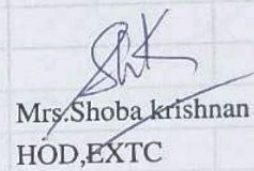 Mrs.Shoba krishnan
HOD,EXTC